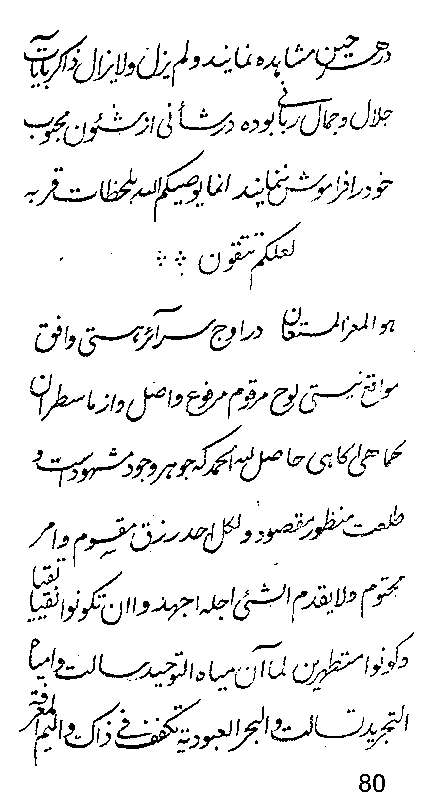 در هر حین مشاهده نمایند و لم یزل و لا یزال ذاکر بآیات
جلال و جمال ربانی بوده در شأنی از شئون محبوب
خود را فراموش ننمایند انما یوصیکم الله بلحظات قربه
لعلکم تتقون
هو المعز المستعان در اوج سرآئر هستی و افق
مواقع نیستی لوح مرقوم مرفوع واصل و از ما سطر ان
کماهی اکاهی حاصل لله الحمد که جوهر وجود مشهود است و
طلعت منظور مقصود و لکل احد رزق مقسوم و امر
محتوم و لا یقدم الشئ اجله اجهدوا ان تکونوا تقیا نقیا
و کونوا متطهرین لما آن میاه التوحید سالت و امیاه
التجرید سالت و البحر العبودیة تکفف فی ذاک و الیم المعرفة
80